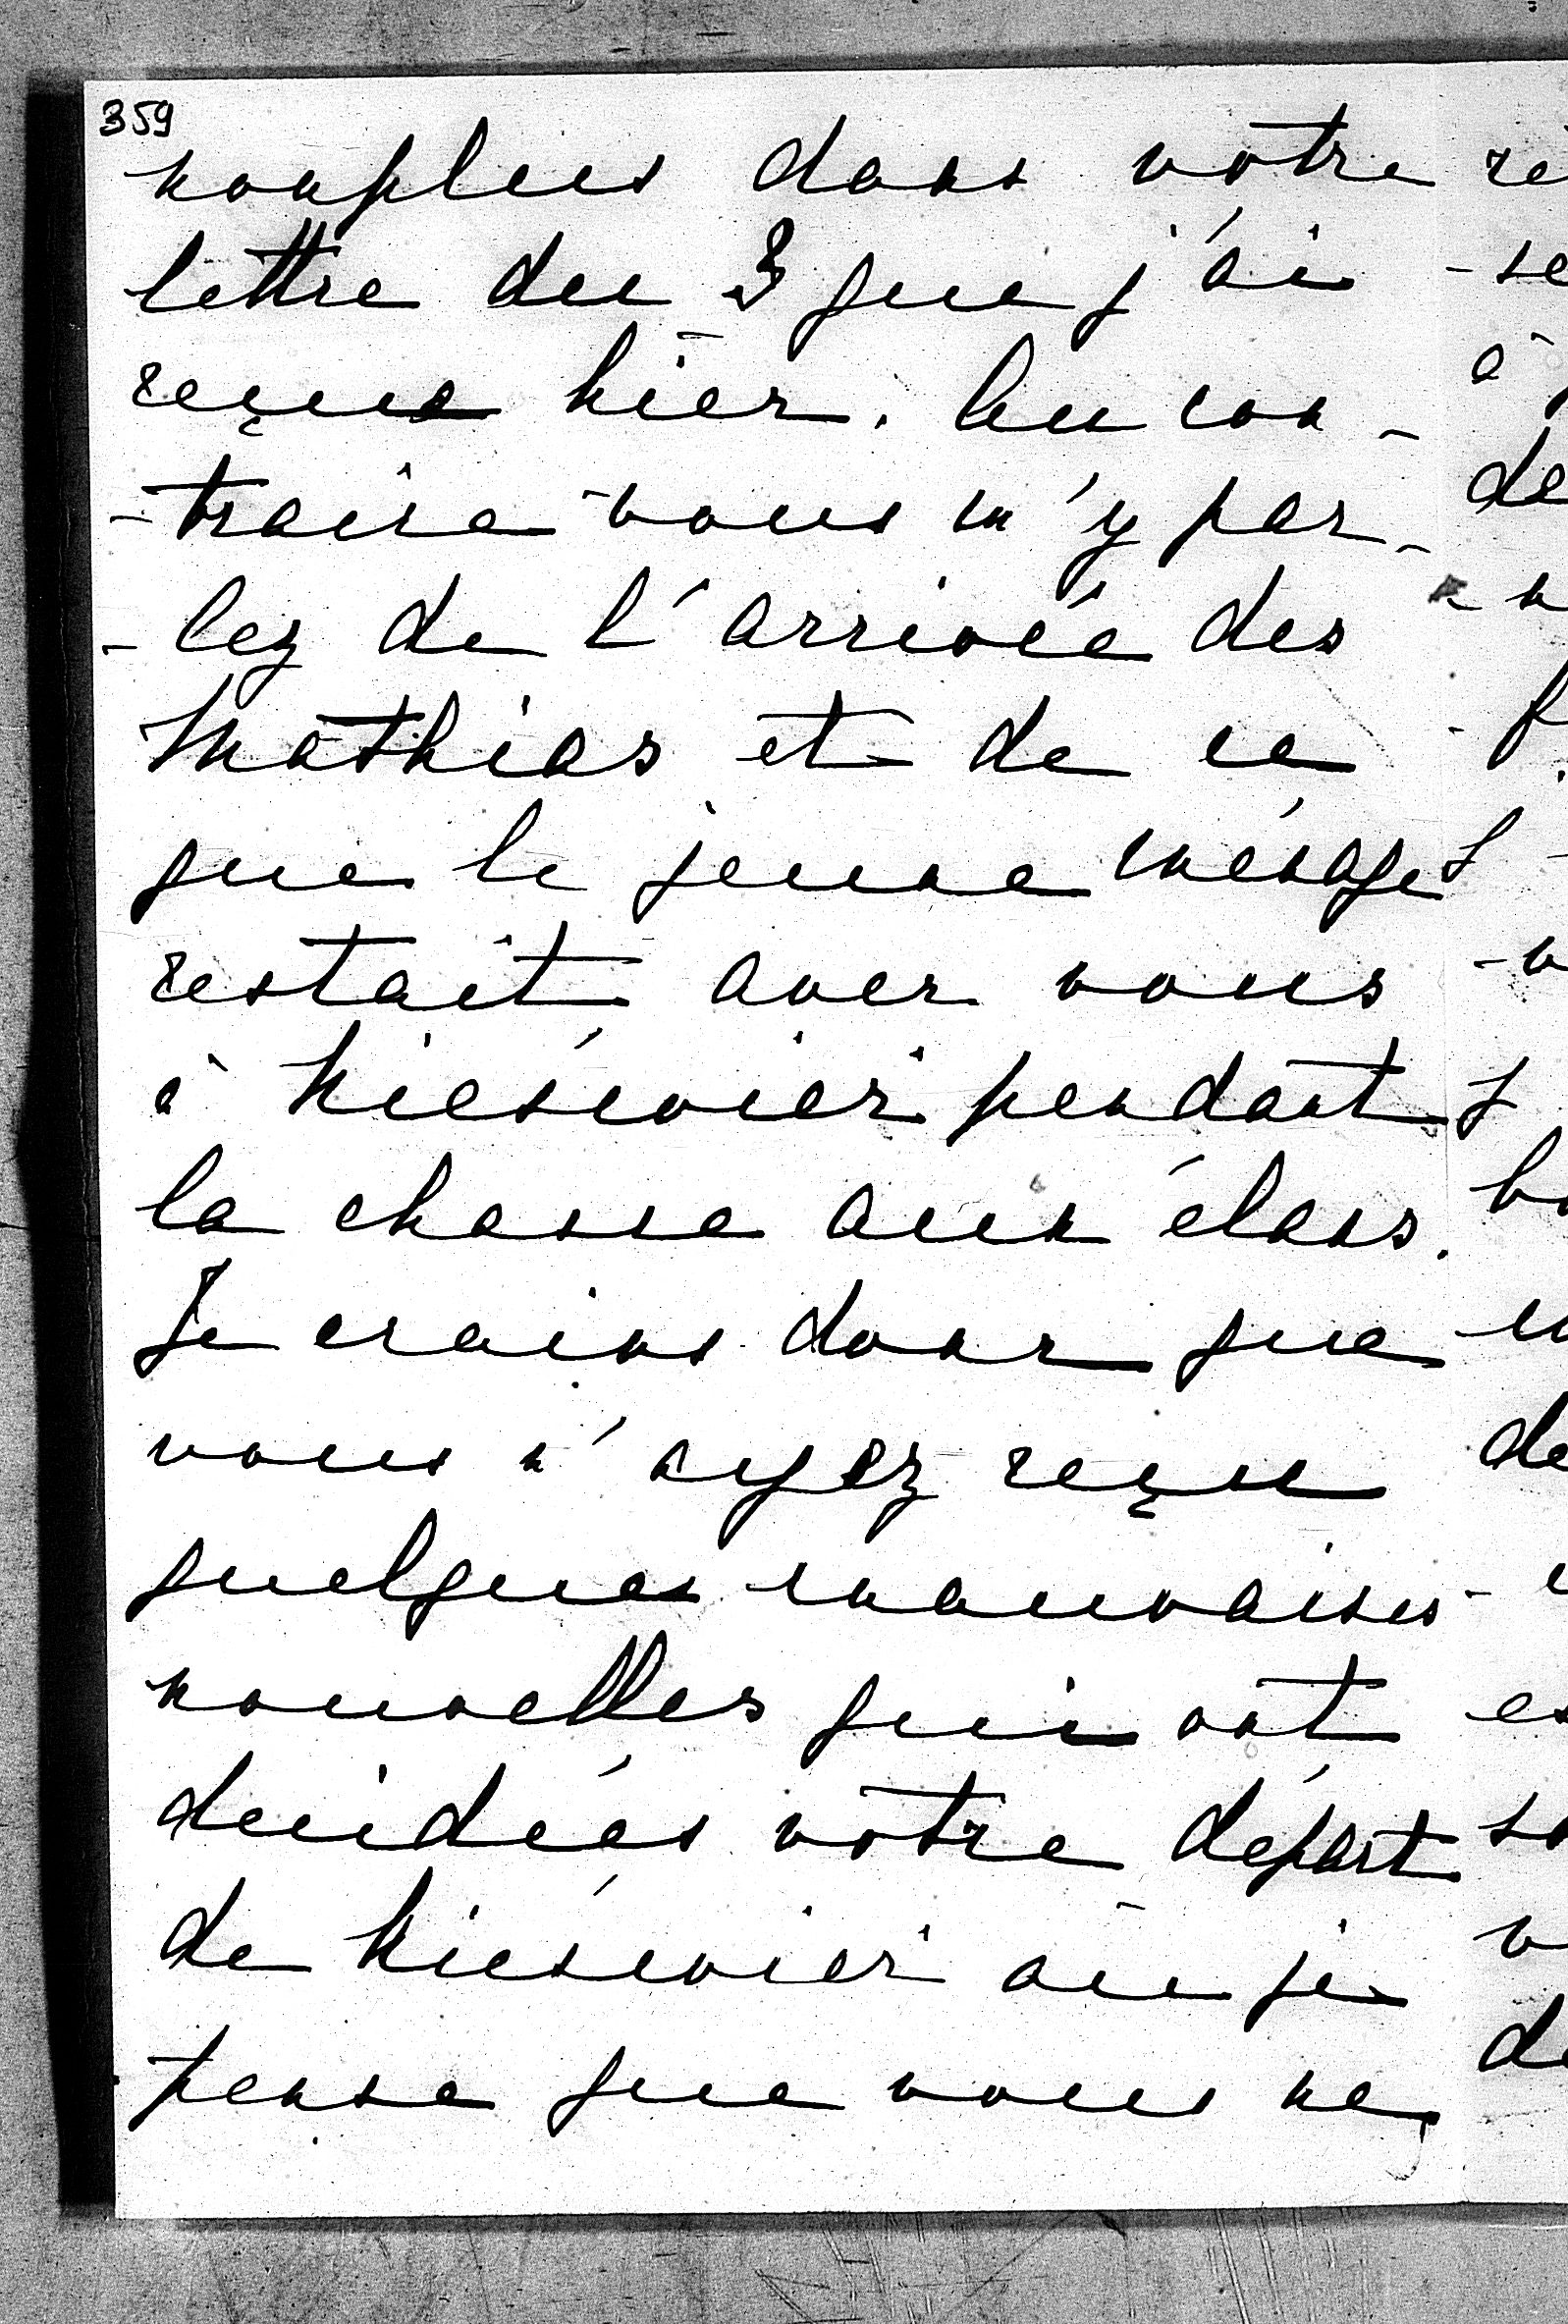 359
nonplus dans votre
lettre du 3 que j'ai
reçue hier. Au con-
-traire vous m'y par-
-lez de l'arrivée des
Mathias et de ce
que le jeune ménage
restait avec vous
à Niéswier pendant
la chasse aux élans.
Je crains donc que
vous n'ayez reçu
quelques mauvaises
nouvelles qui ont
decidées votre départ
de Niéswier où je
pense que vous ne